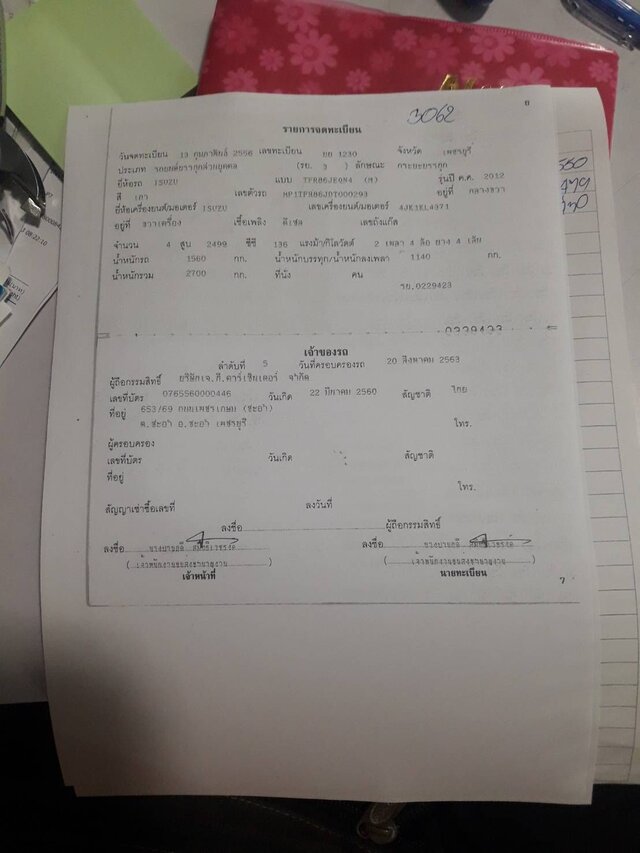 3062
รายการจดทะเบียน
วันจดทะเบียน 13 กุมภาพันธ์ 2556 เลขทะเบียน ยย 1230 จังหวัด เพชรบุรี
ประเภท รถยนต์บรรทุกส่วนบุคคล (รย. 3 ) ลักษณะ กระบะบรรทุก
ยี่ห้อรถ ISUZU แบบ TFR86JEQN4 (M) รุ่นปี ค.ศ. 2012
สี เทา เลขตัวรถ MP1TFR86JDT000293 อยู่ที่ กลางขวา
ยี่ห้อเครื่องยนต์/มอเตอร์ ISUZU เลขเครื่องยนต์/มอเตอร์ 4JK1KL4371
อยู่ที่ ขวาเครื่อง เชื้อเพลิง ดีเซล เลขถังแก๊ส
จำนวน 4 สูบ 2499 ซีซี 136 แรงม้า/กิโลวัตต์ 2 เพลา 4 ล้อ ยาง 4 เส้น
น้ำหนักรถ 1560 กก. น้ำหนักบรรทุก/น้ำหนักลงเพลา 1140 กก.
น้ำหนักรวม 2700 กก. ที่นั่ง คน
รย.0229423
0229423
เจ้าของรถ
ลำดับที่ 5 วันที่ครอบครองรถ 20 สิงหาคม 2563
ผู้ถือกรรมสิทธิ์ บริษัทเจ.ที.คาร์เซ็นเตอร์ จำกัด
เลขที่บัตร 0765560000446 วันเกิด 22 มีนาคม 2560 สัญชาติ ไทย
ที่อยู่ 653/69 ถนนเพชรเกษม (ชะอำ)
ต.ชะอำ อ.ชะอำ เพชรบุรี โทร.
ผู้ครอบครอง
เลขที่บัตร วันเกิด สัญชาติ
ที่อยู่
โทร.
สัญญาเช่าซื้อเลขที่ ลงวันที่
ลงชื่อ ผู้ถือกรรมสิทธิ์
ลงชื่อ ลงชื่อ
(เจ้าพนักงานขนส่งชำนาญงาน) (เจ้าพนักงานขนส่งชำนาญงาน)
เจ้าหน้าที่ นายทะเบียน
7